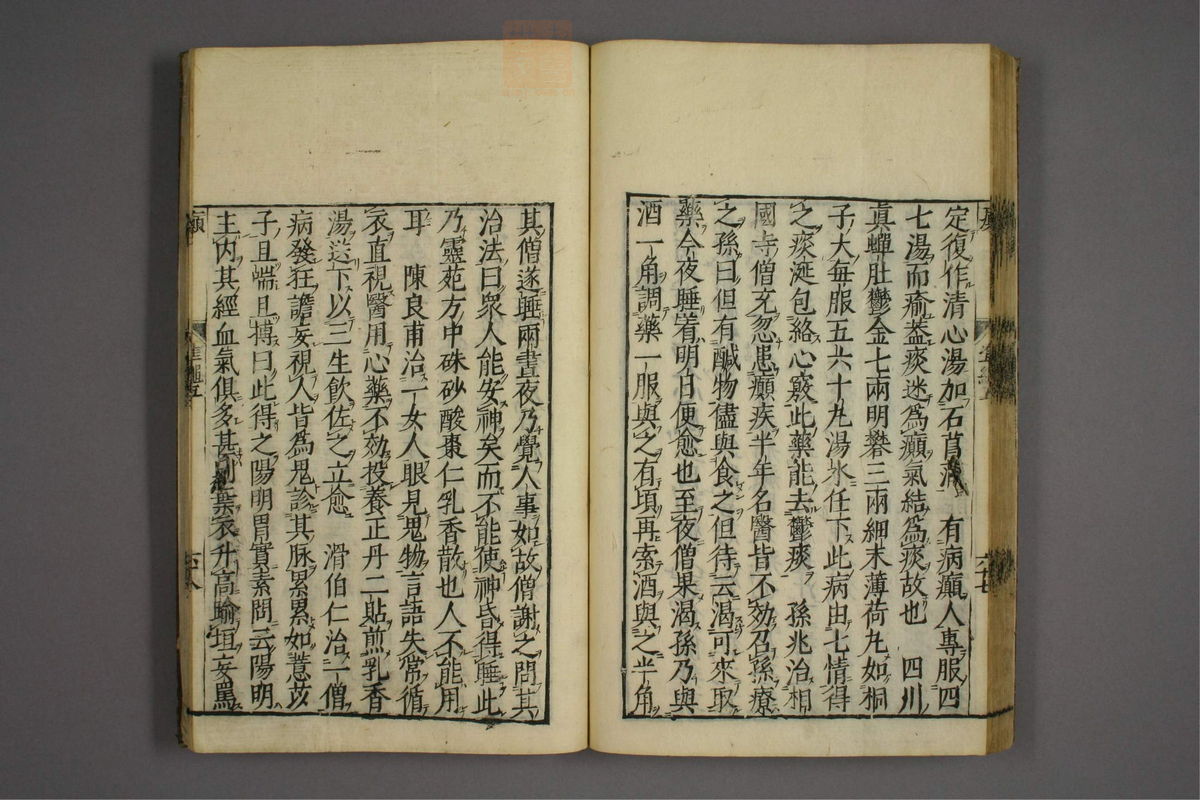 定復作清心湯加石菖蒲　有病癲人專服四
七湯而瘉葢痰迷爲癲氣結爲痰故也　四川
眞蟬肚鬱金七兩明礬三兩細末薄荷丸如桐
子大每服五六十丸湯水任下此病由七情得
之痰涎包絡心竅此藥能去鬱痰　孫兆治相
國寺僧充忽患癲疾半年名醫皆不効召孫療
之孫曰但有鹹物儘與食之但待云渴可來取
藥今夜睡着明日便愈也至夜僧果渴孫乃與
酒一角調藥一服與之有頃再索酒與之半角
其僧遂睡兩晝夜乃覺人事如故僧謝之問其
治法曰衆人能安神矣而不能使神昏得睡此
乃靈苑方中硃砂酸棗仁乳香散也人不能用
耳　陳良甫治一女人眼見鬼物言語失常循
衣直視醫用心藥不効投養正丹二貼煎乳香
湯送下以三生飮佐之立愈　滑伯仁治一僧
病發狂譫妄視人皆爲鬼診其脉累累如薏苡
子且喘且搏曰此得之陽明胃實素問云陽明
主內其經血氣俱多甚則棄衣升高踰垣妄罵
癲
六八